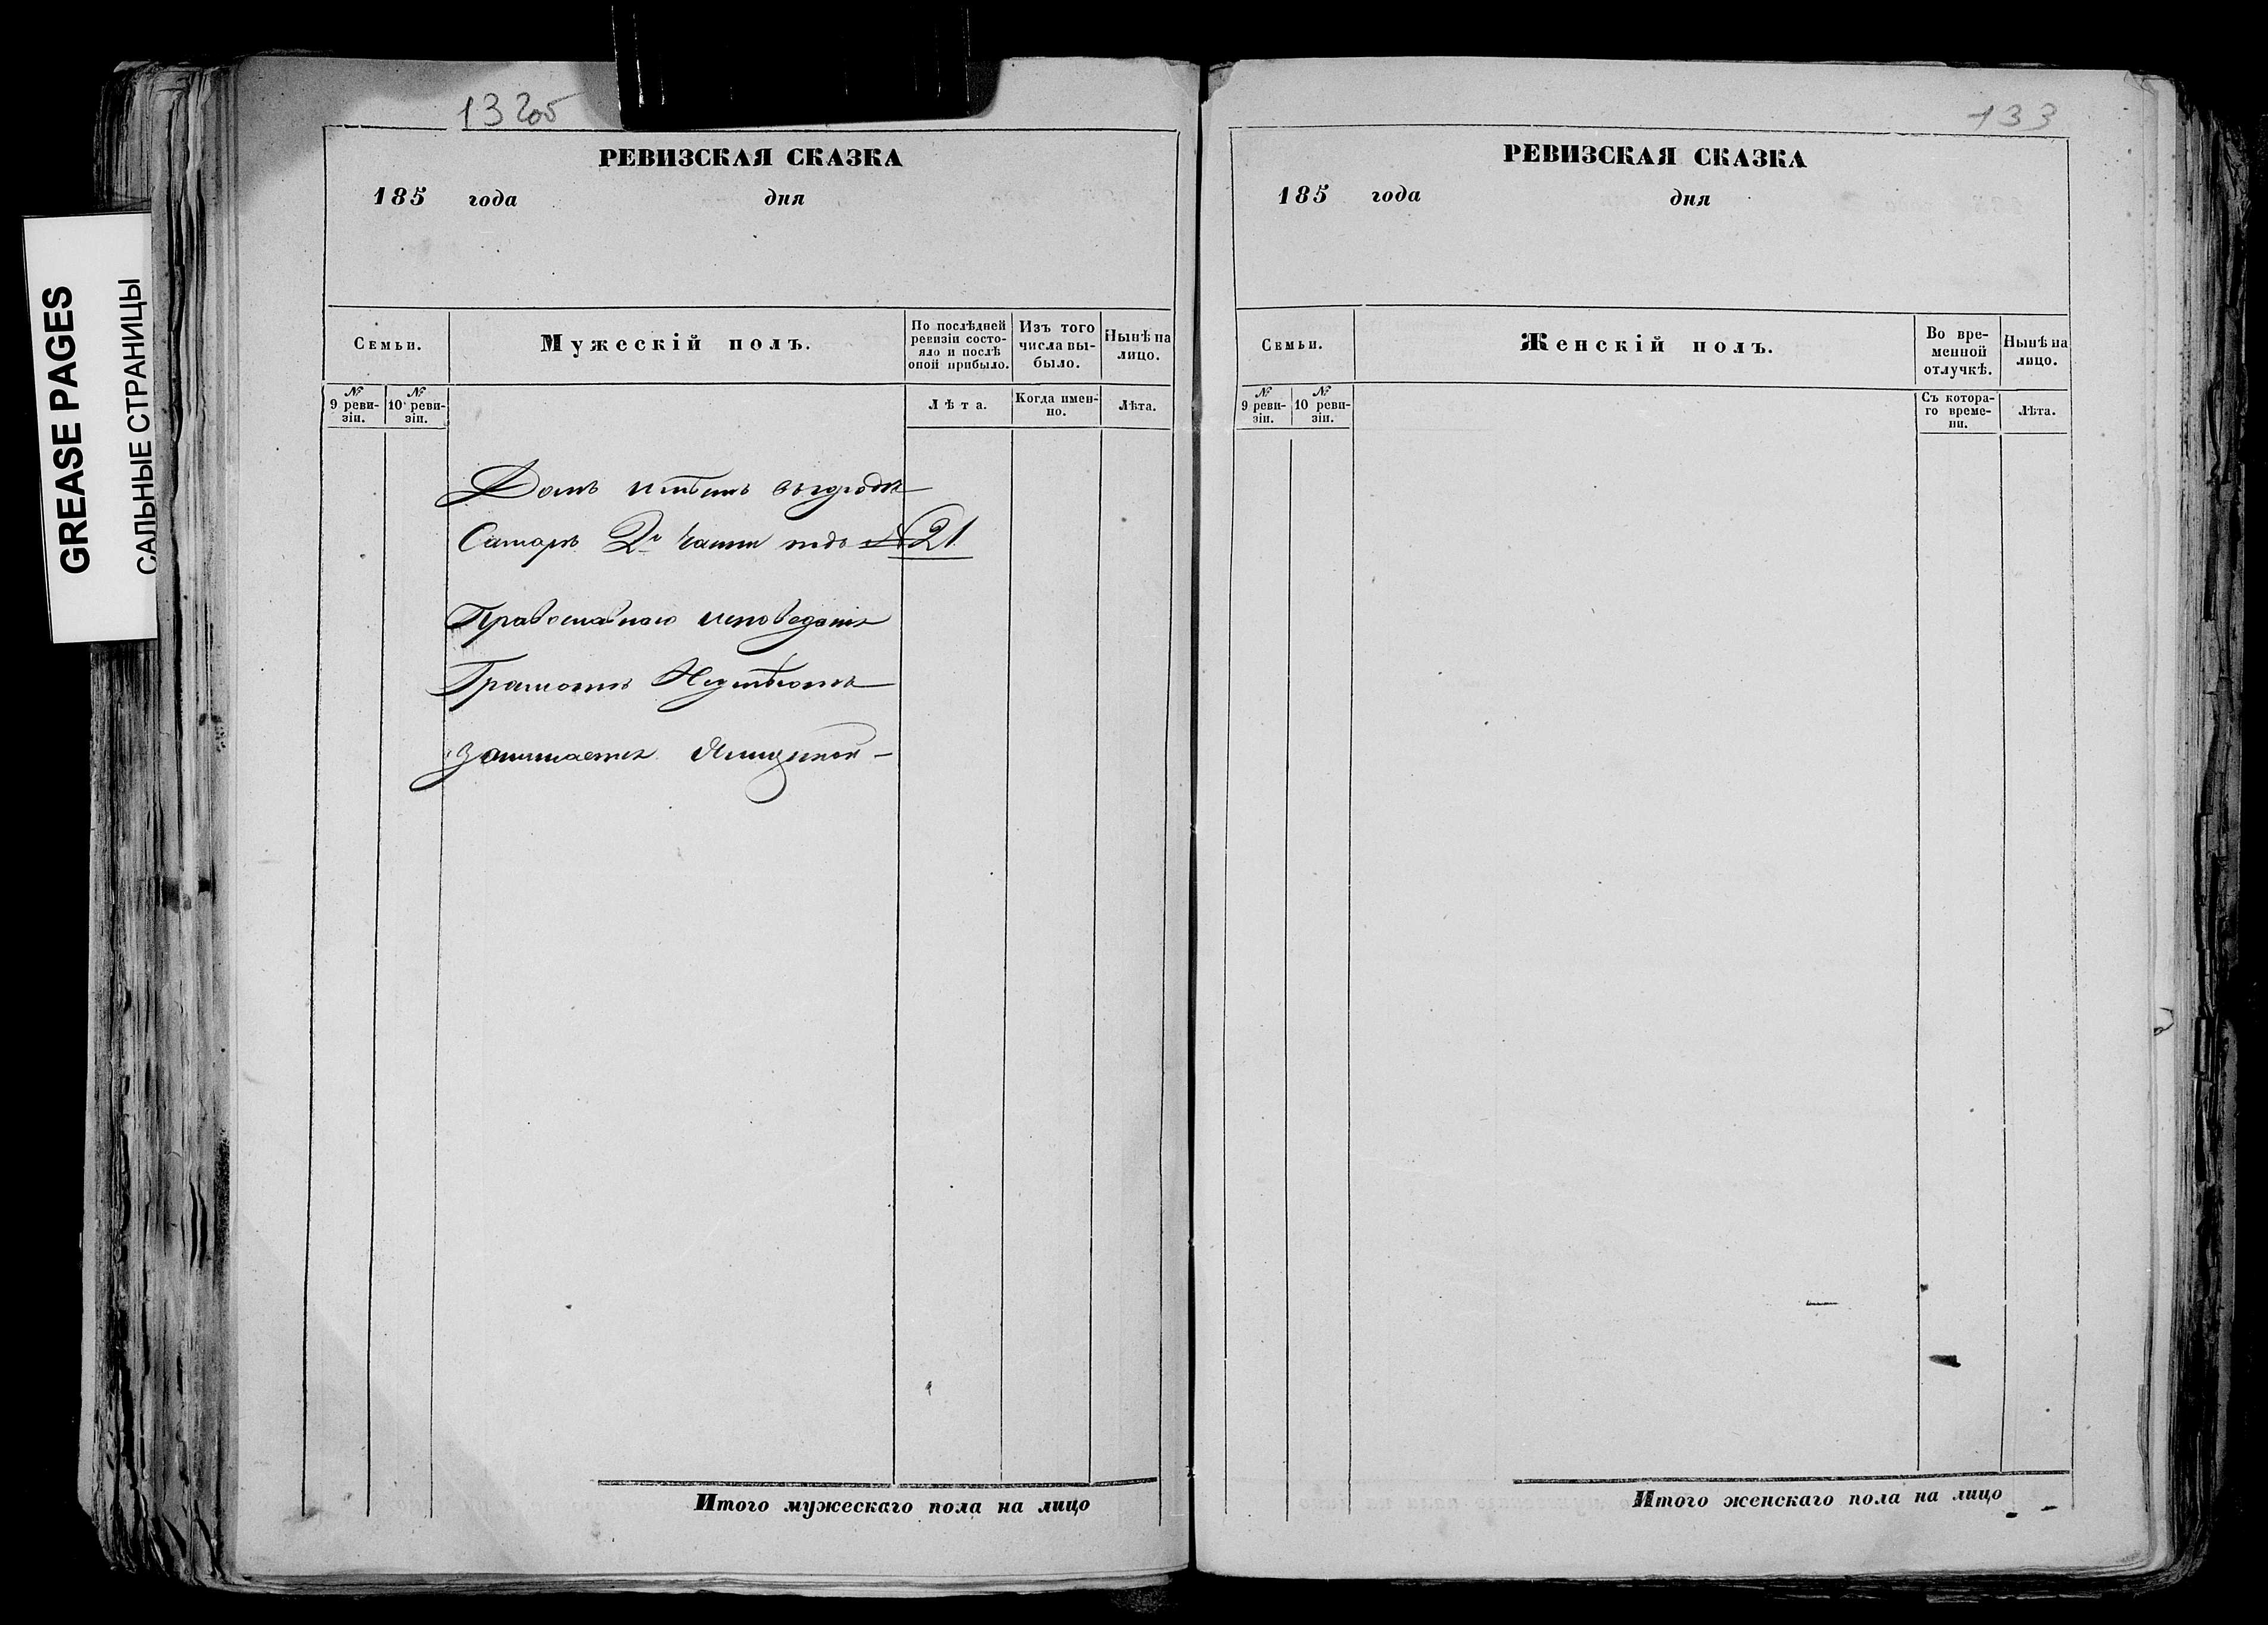 GREASE PAGES
САЛЬНЫЕ СТРАНИЦЫ
132об
РЕВИЗСКАЯ СКАЗКА
185 года дня
Семьи.
Мужескій полъ.
По послѣдней
ревизіи состо-
яло и послѣ
оной прибыло.
Изъ того
числа вы-
было.
Нынѣ на
лицо.
№
9 реви-
зіи.
№
10 реви-
зіи.
Лѣта.
Когда имен-
но.
Лѣта.
Домъ имѣетъ въ городѣ
Самарѣ 2й части подъ №21
Православнаго исповеданія
Грамотѣ Неумѣютъ
Занимается
Итого мужескаго пола на лицо
133
РЕВИЗСКАЯ СКАЗКА
185 года дня
Семьи.
Женскій полъ.
Во вре-
менной
отлучкѣ.
Нынѣ на
лицо.
№
9 реви-
зіи.
№
10 реви-
зіи.
Съ котора-
го време-
ни.
Лѣта.
Итого женскаго пола на лицо